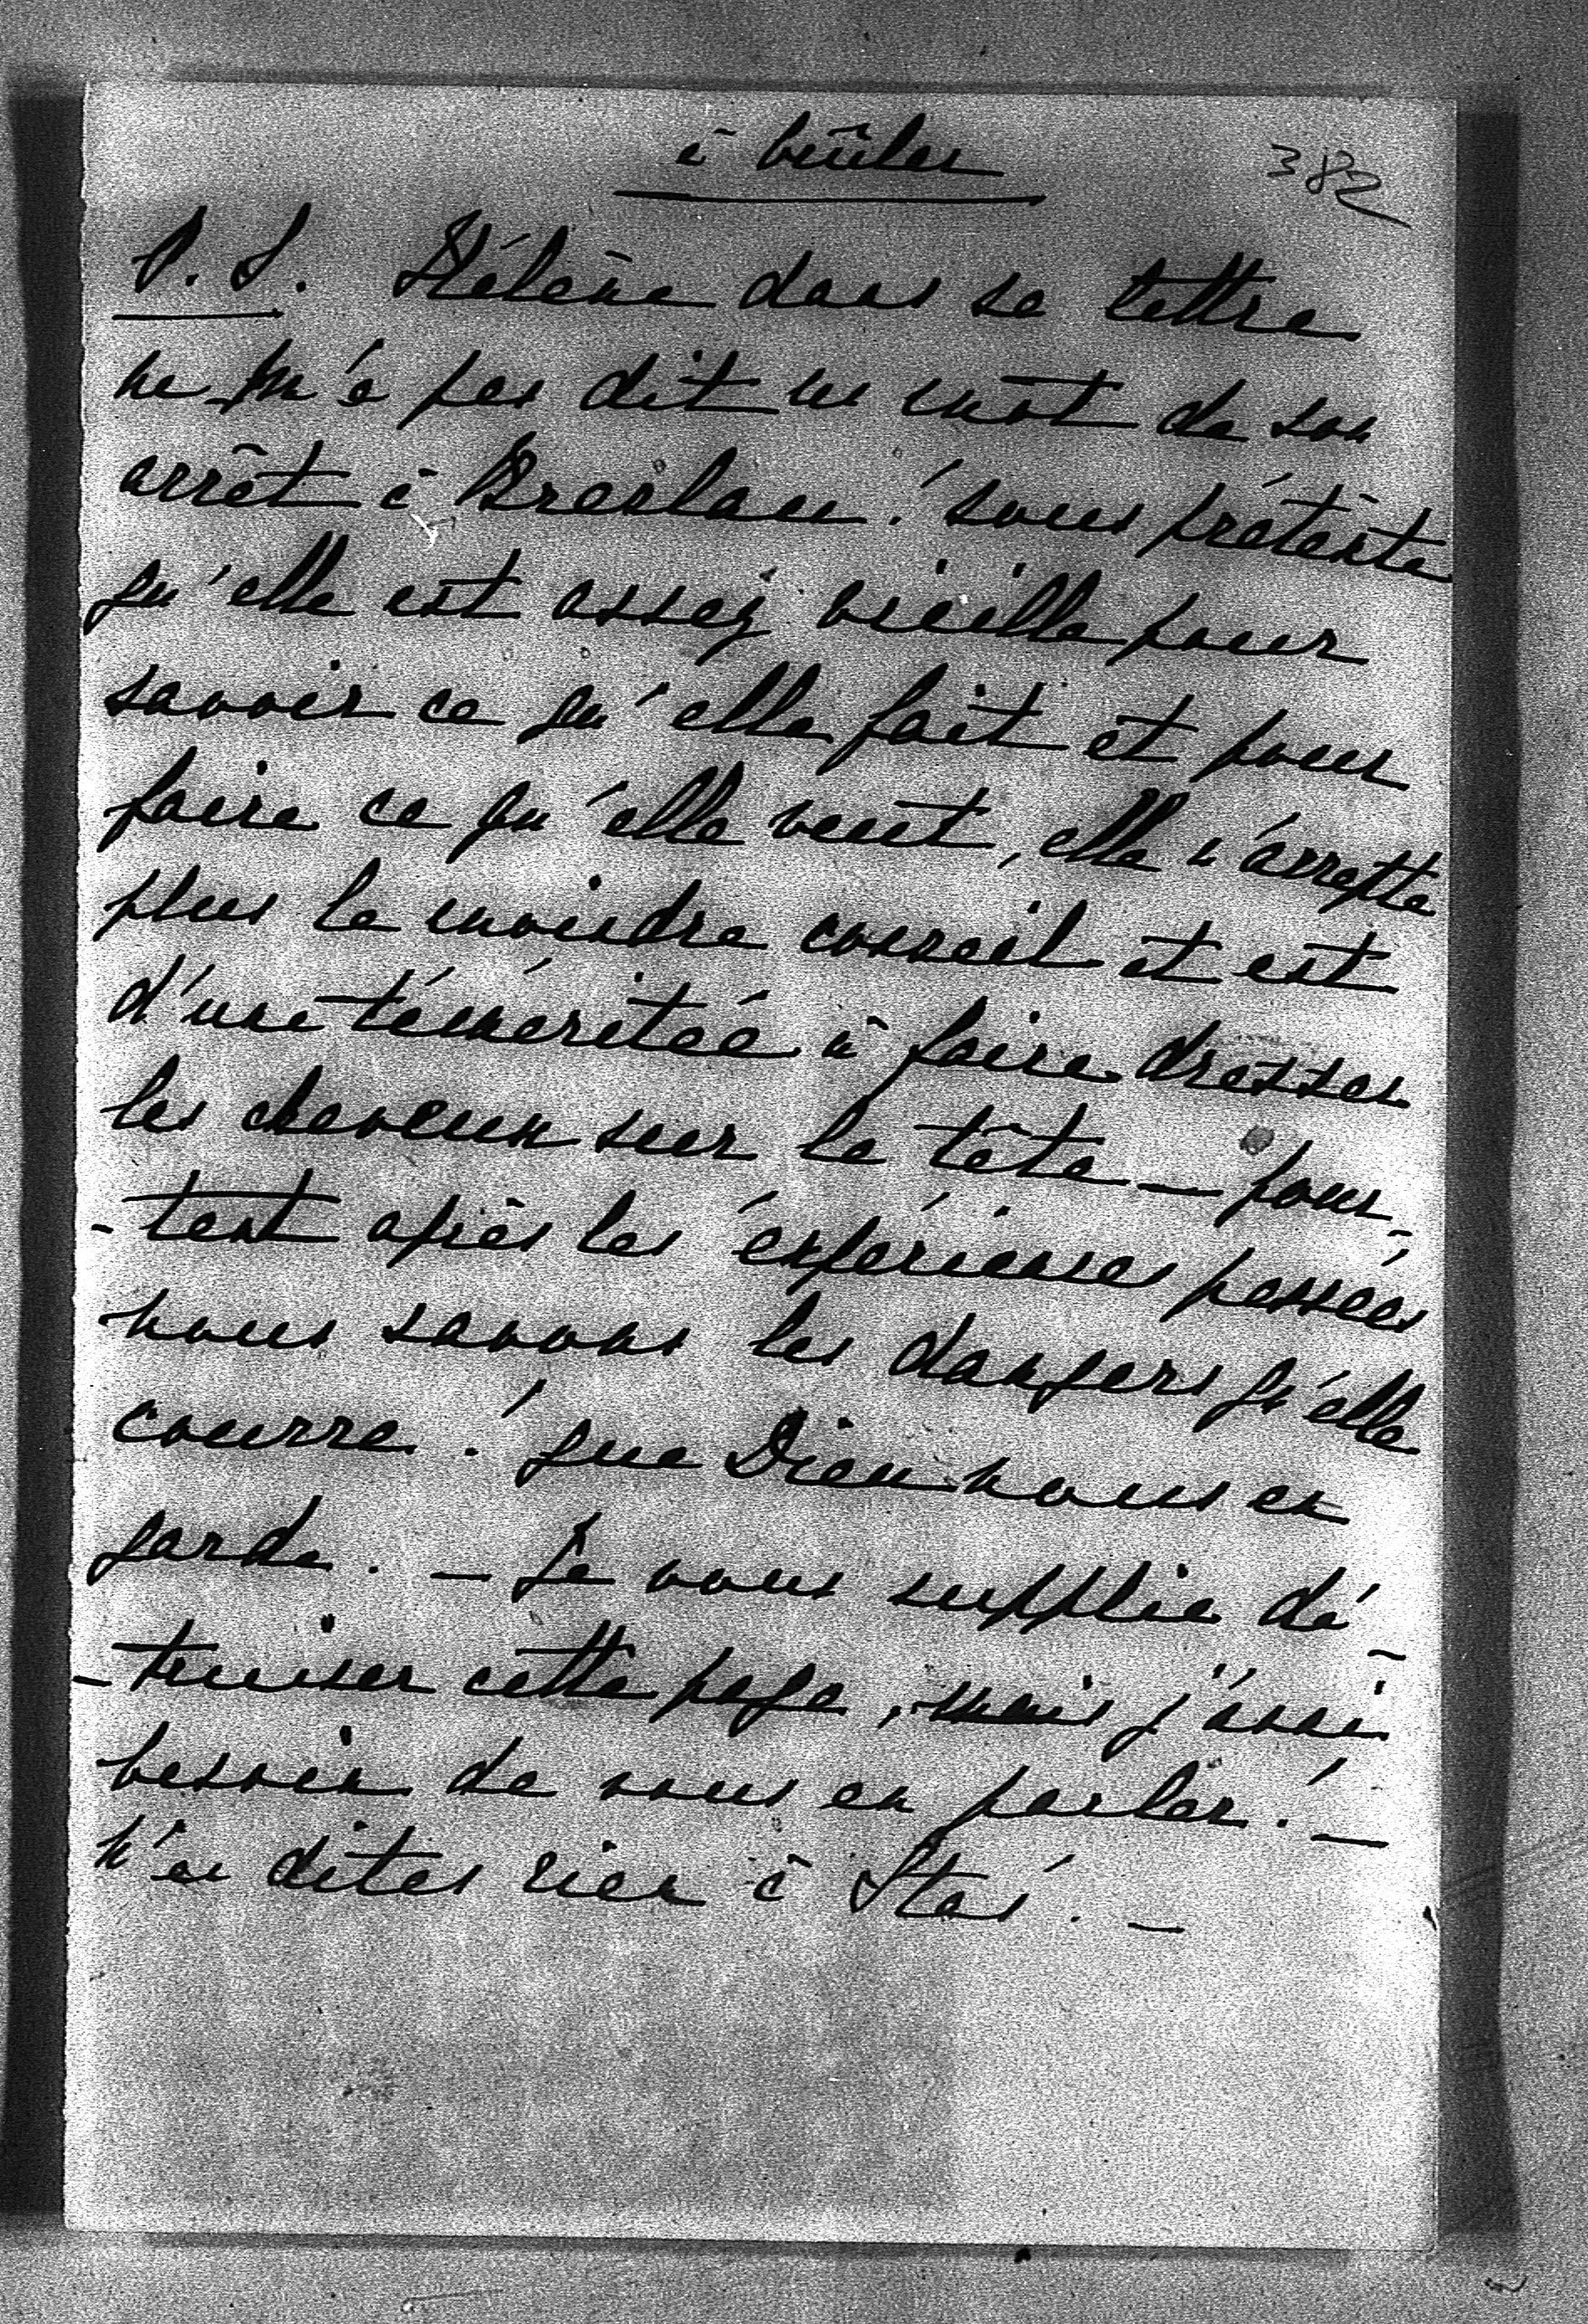 à brûler
382
P.S. Hélène dans sa lettre
ne m'a pas dit un mot de son
arrêt à Breslau! sous prétexte
qu'elle est assez vieille pour
savoir ce qu'elle fait et pour
faire ce qu'elle veut, elle n'accepte
plus le moindre conseil et est
d'une témeritée à faire dresser
les cheveux sur la tête — pour-
-tant après les éxpériences passées
nous savons les dangers qu'elle
courre! que Dieu nous en
garde. — Je vous supplie dé-
-truiser cette page, mais j'avai
besoin de vous en parler! —
n'en dites rien à Stas! —